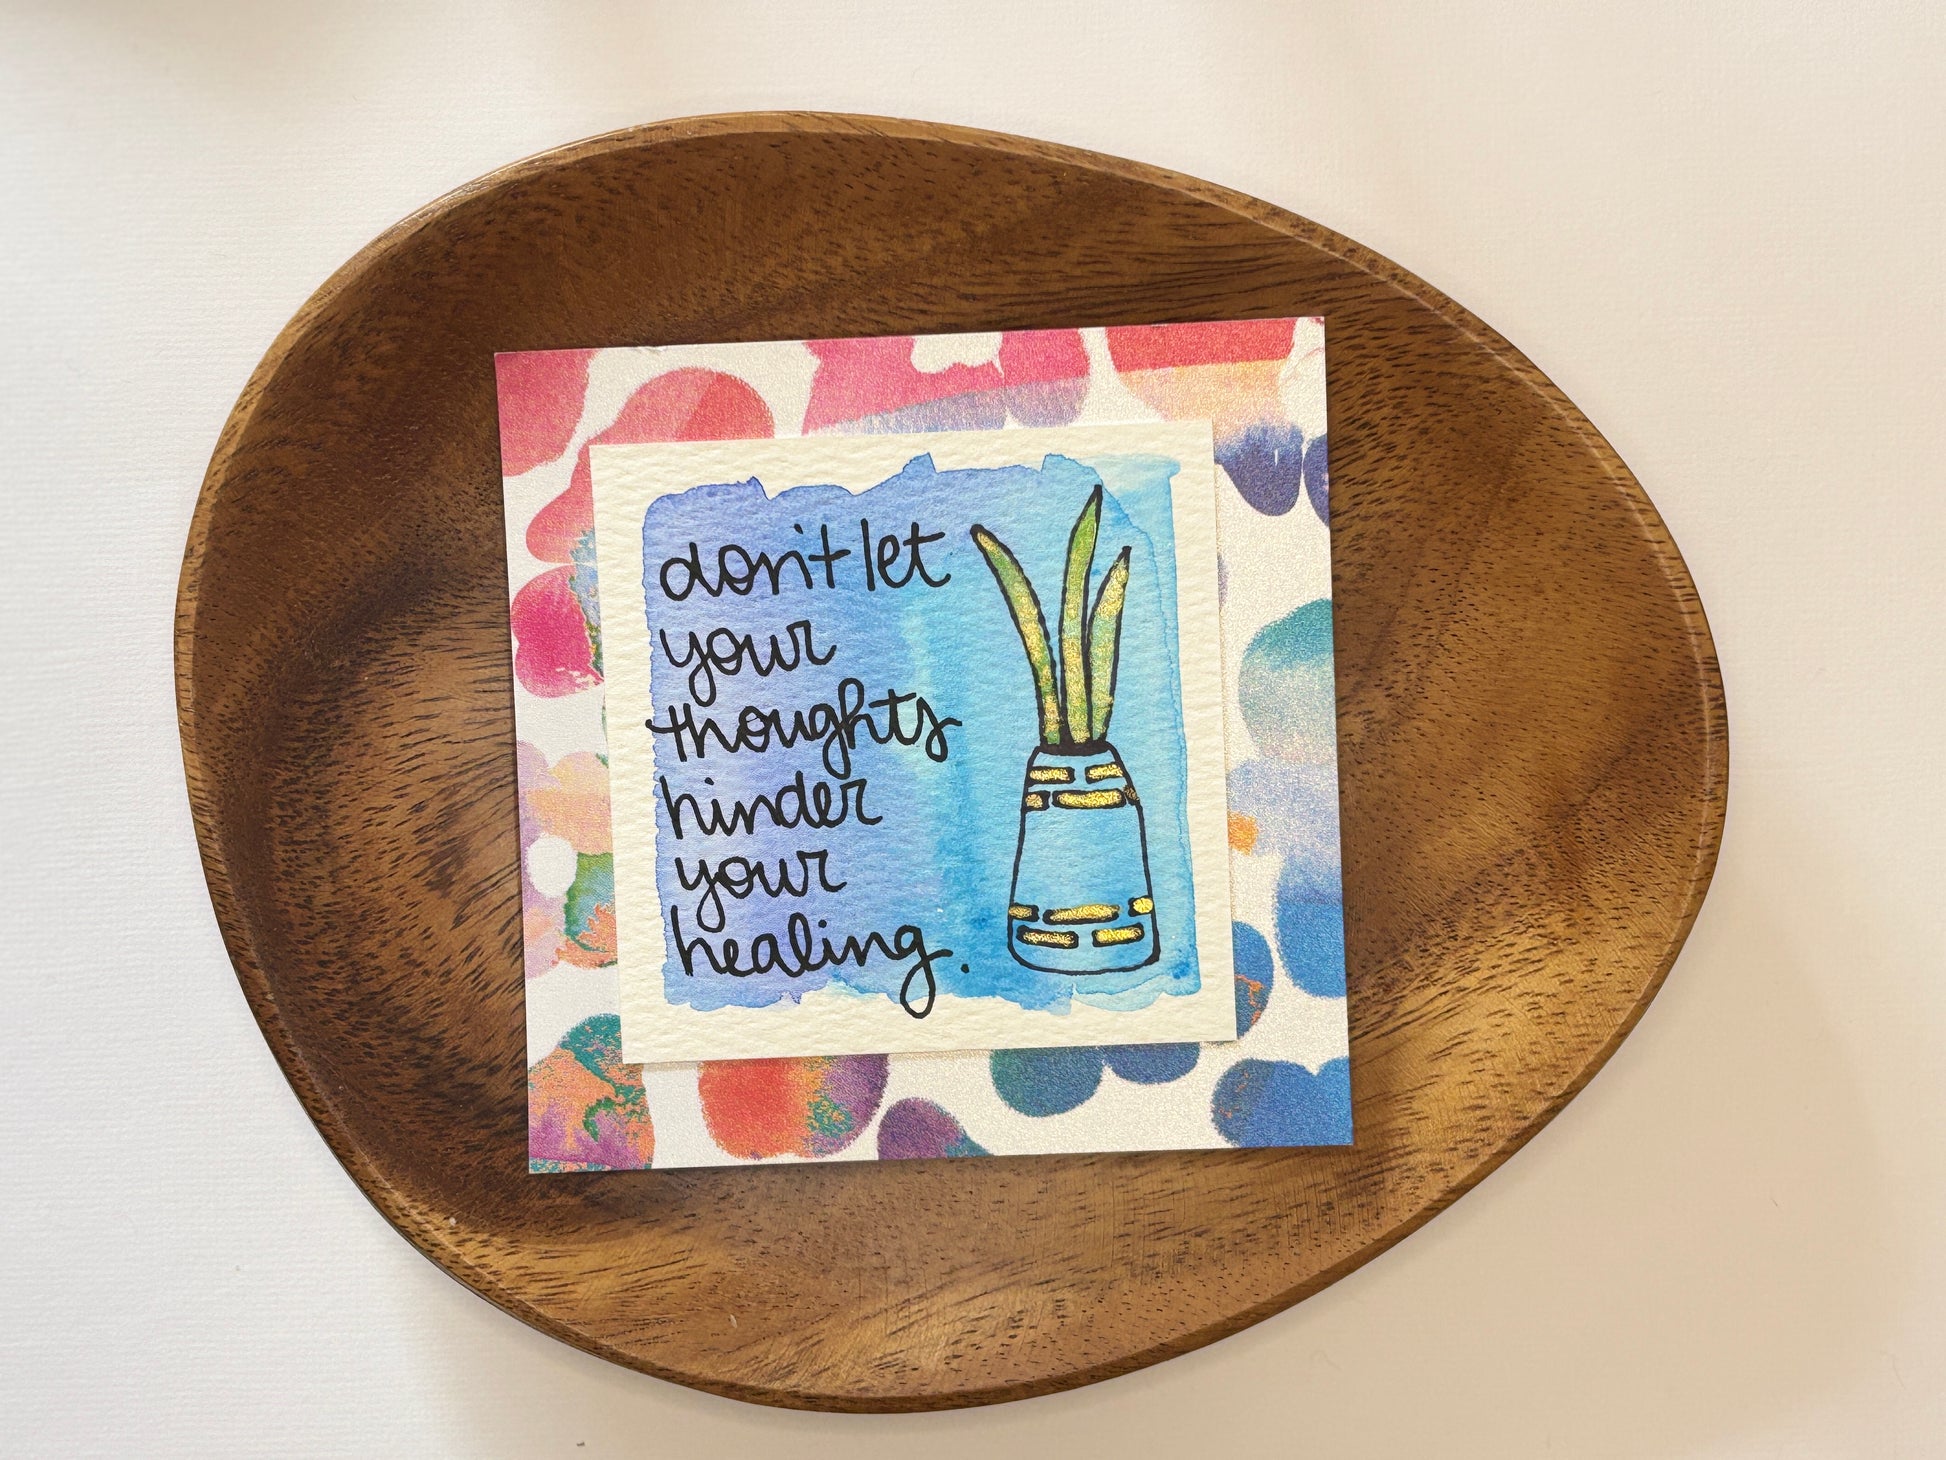 don't let
your
thoughts
hinder
your
healing.